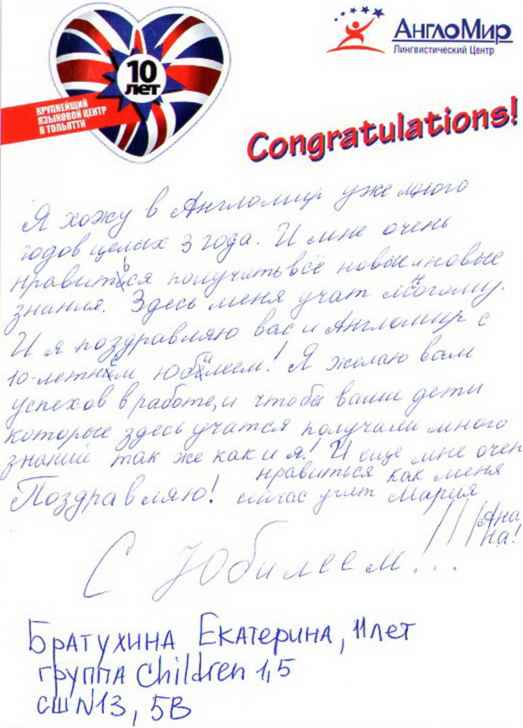 10
ЛЕТ
КРУПНЕЙШИЙ
ЯЗЫКОВОЙ ЦЕНТР
В ТОЛЬЯТТИ
АНГЛОМИР
ЛИНГВИСТИЧЕСКИЙ ЦЕНТР
Congratulations!
Я хожу в Англомир уже много
годов целых 3 года. И мне очень
нравиться получить всё новые и новые
знания. Здесь меня учат многому.
И я поздравляю вас и Англомир с
10-летним юбилеем! Я желаю вам
успехов в работе, и чтобы ваши дети
которые здесь учатся получали много
знаний так же как и я! И ещё мне очен
нравиться как меня
Поздравляю! сейчас учит Мария
С Юбилеем!...
Братухина Екатерина, 11 лет
группа Children 1,5
СШ N13, 5В